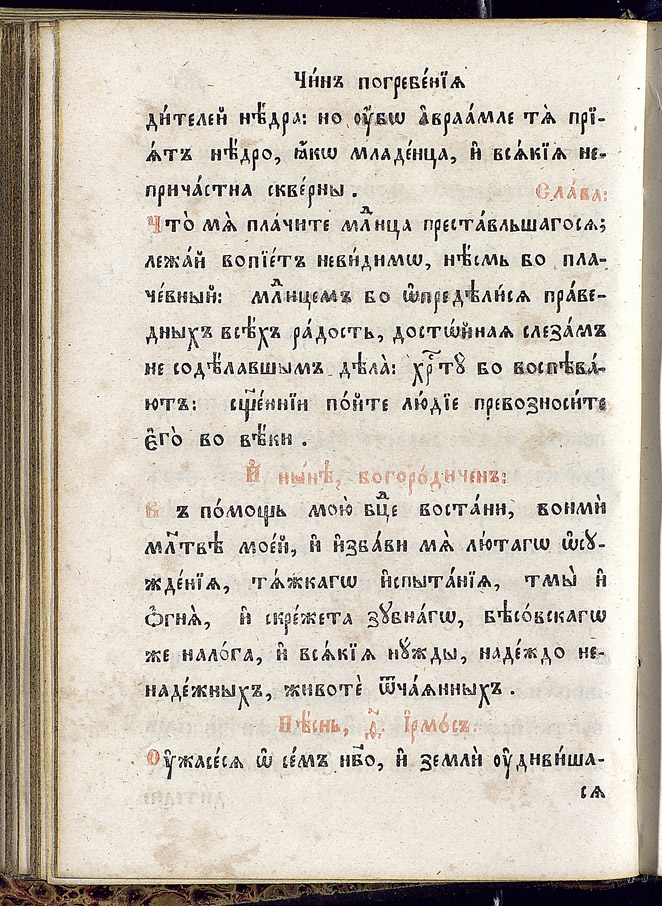 Чи́нъ погребе́нїѧ
ди́телей нѣ́дра: но ᲂу҆́бѡ а҆враа́мле тѧ̀ прїѧ-
́тъ нѣ́дро, ꙗ҆́кѡ младе́нца, и҆ всѧ́кїѧ не-
прича́стна скве́рны .
Сла́ва:
Что̀ мѧ̀ пла́чите млⷣнца преста́вльшагосѧ;
лежа́й вопїе́тъ неви́димѡ, нѣ́смь бо пла-
че́вный: млⷣнцемъ бо ѡ҆предѣли́сѧ пра́ве-
дныхъ всѣ́хъ ра́дость, досто́йнаѧ слеза́мъ
не содѣ́лавшымъ дѣла̀: хрⷭ҇тꙋ̀ бо воспѣва́-
ютъ: сщ҃е́нніи по́йте лю́дїе превозноси́те
є҆го̀ во вѣ́ки .
И҆ ны́нѣ, богоро́диченъ:
Въ по́мощь мою̀ бцⷣе воста́ни, вонмѝ
мл҃твѣ мое́й, и҆ и҆зба́ви мѧ̀ лю́тагѡ ѡ҆сꙋ-
жде́нїѧ, тѧ́жкагѡ и҆спыта́нїѧ, тмы̀ и҆
ѻ҆гнѧ̀, и҆ скре́жета зꙋбна́гѡ, бѣсо́вскагѡ
же нало́га, и҆ всѧ́кїѧ нꙋ́жды, наде́ждо не-
наде́жныхъ, животѐ ѿча́ѧнныхъ .
Пѣ́снь, ѳ҃. І҆рмо́съ.
Оу҆жасе́сѧ ѡ҆ се́мъ нб҃о, и҆ землѝ ᲂу҆диви́ша-
сѧ